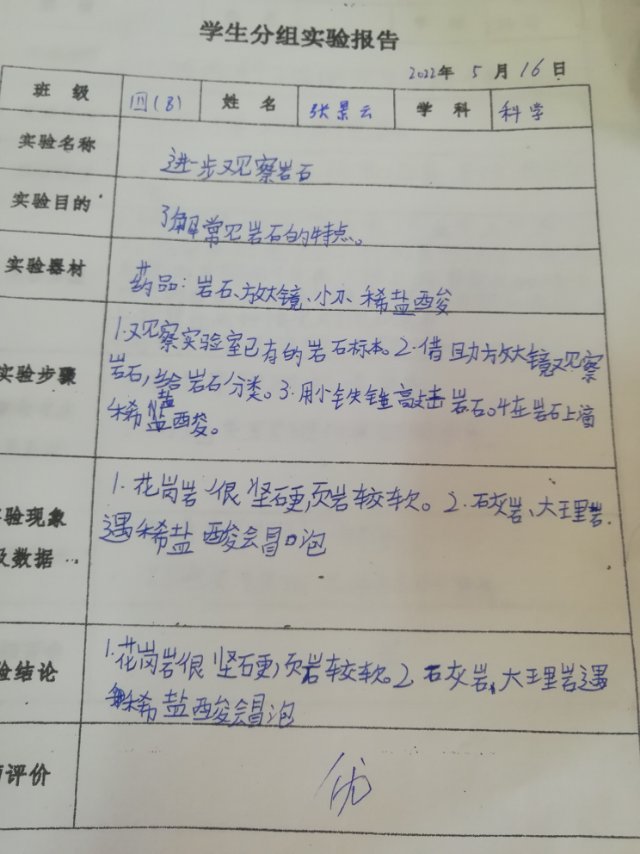 学生分组实验报告
2022年 5 月 16 日
班 级 四(8) 姓 名 张景云 学 科 科学
实验名称 进步观察岩石
实验目的 了解常见岩石的特点。
实验器材 药品:岩石、放大镜、小刀、稀盐酸
实验步骤
1.观察实验室已有的岩石标本。2.借助放大镜观察
岩石,给岩石分类。3.用小铁锤敲击岩石。4在岩石上滴
稀盐酸。
验现象
及数据
1.花岗岩很坚硬,页岩较软。2.石灰岩、大理岩
遇稀盐酸会冒泡
验结论
1.花岗岩很坚硬,页岩较软。2石灰岩、大理岩遇
稀盐酸会冒泡
评价
优